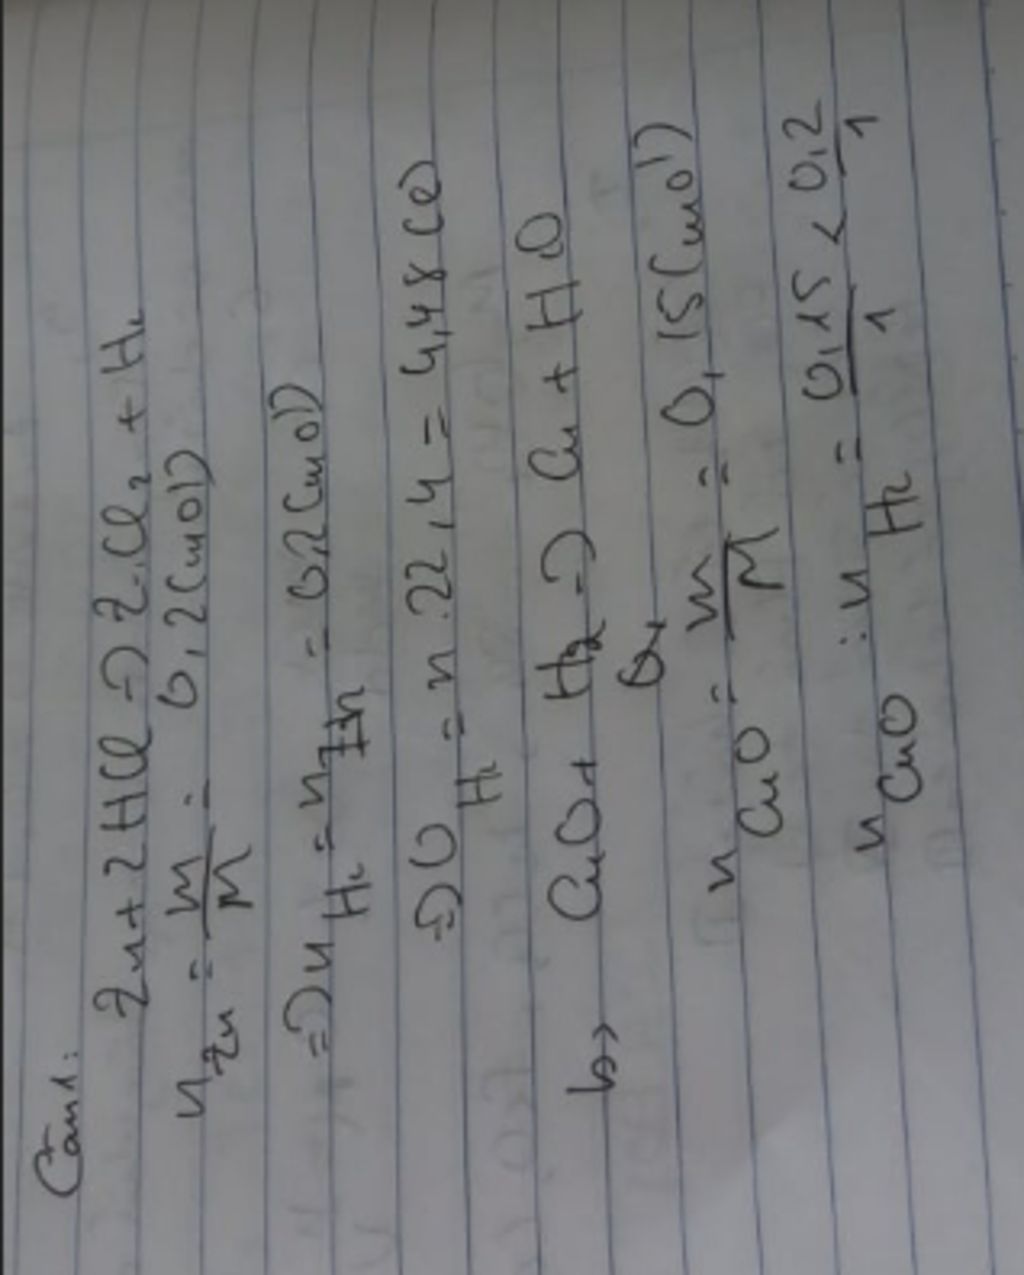 Câu 1:
Zn + 2HCl => Z.Cl₂ + H₂
n Zn = m/M = 0,2 (mol)
=> n H₂ = n Zn = 0,2 (mol)
=> V H₂ = n.22,4 = 4,48 (l)
b, CuO + H₂ => Cu + H₂O
n CuO = m/M = 0,15 (mol)
n CuO : n H₂ = 0,15/1 < 0,2/1